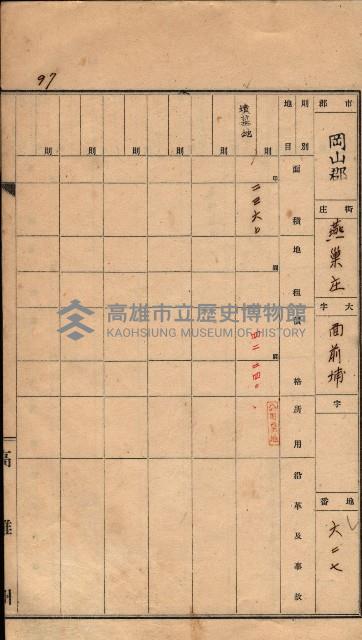 97
市郡 岡山郡 街庄 燕巢庄 大字 面前埔 字 地番 六二七
則別 地目 面積 地租 價格 所用 沿革及事故
墳墓地 則
甲 二三六〇
圓
圓 四二二四〇
公用墓地
則
則
則
則
則
高雄州
高雄市立歷史博物館
KAOHSIUNG MUSEUM OF HISTORY